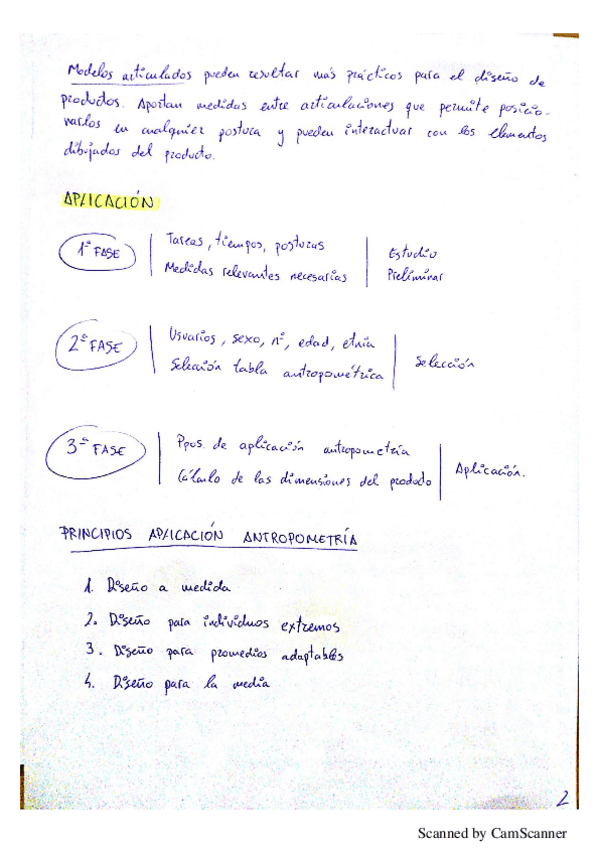 Modelos articulados pueden resultar más prácticos para el diseño de
productos. Aportan medidas entre articulaciones que permite posicio-
narlos en cualquier postura y pueden interactuar con los elementos
dibujados del producto.
APLICACIÓN
1ª FASE | Tareas, tiempos, posturas
Medidas relevantes necesarias | Estudio
Preliminar
2ª FASE | Usuarios, sexo, nº, edad, etnia
Selección tabla antropométrica | Selección
3ª FASE | Ppos. de aplicación antropometría
Cálculo de las dimensiones del producto | Aplicación.
PRINCIPIOS APLICACIÓN ANTROPOMETRÍA
1. Diseño a medida
2. Diseño para individuos extremos
3. Diseño para promedios adaptables
4. Diseño para la media
2
Scanned by CamScanner